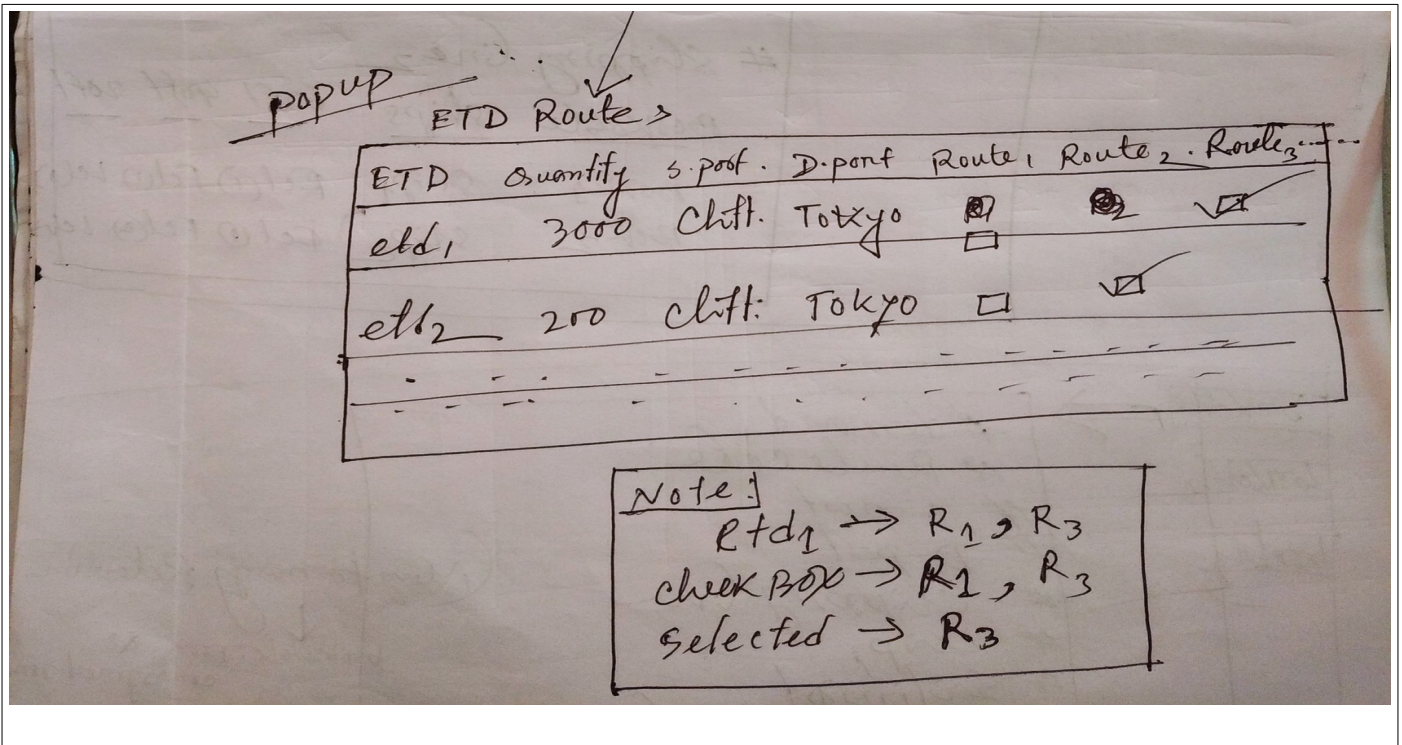 popup
ETD Routes
ETD Quantity S.port. D.port Route1 Route2. Route3......
etd1 3000 Chitt. Tokyo
etd2 200 Chitt: Tokyo
Note:
Etd1 → R1, R3
check Box → R1, R3
selected → R3